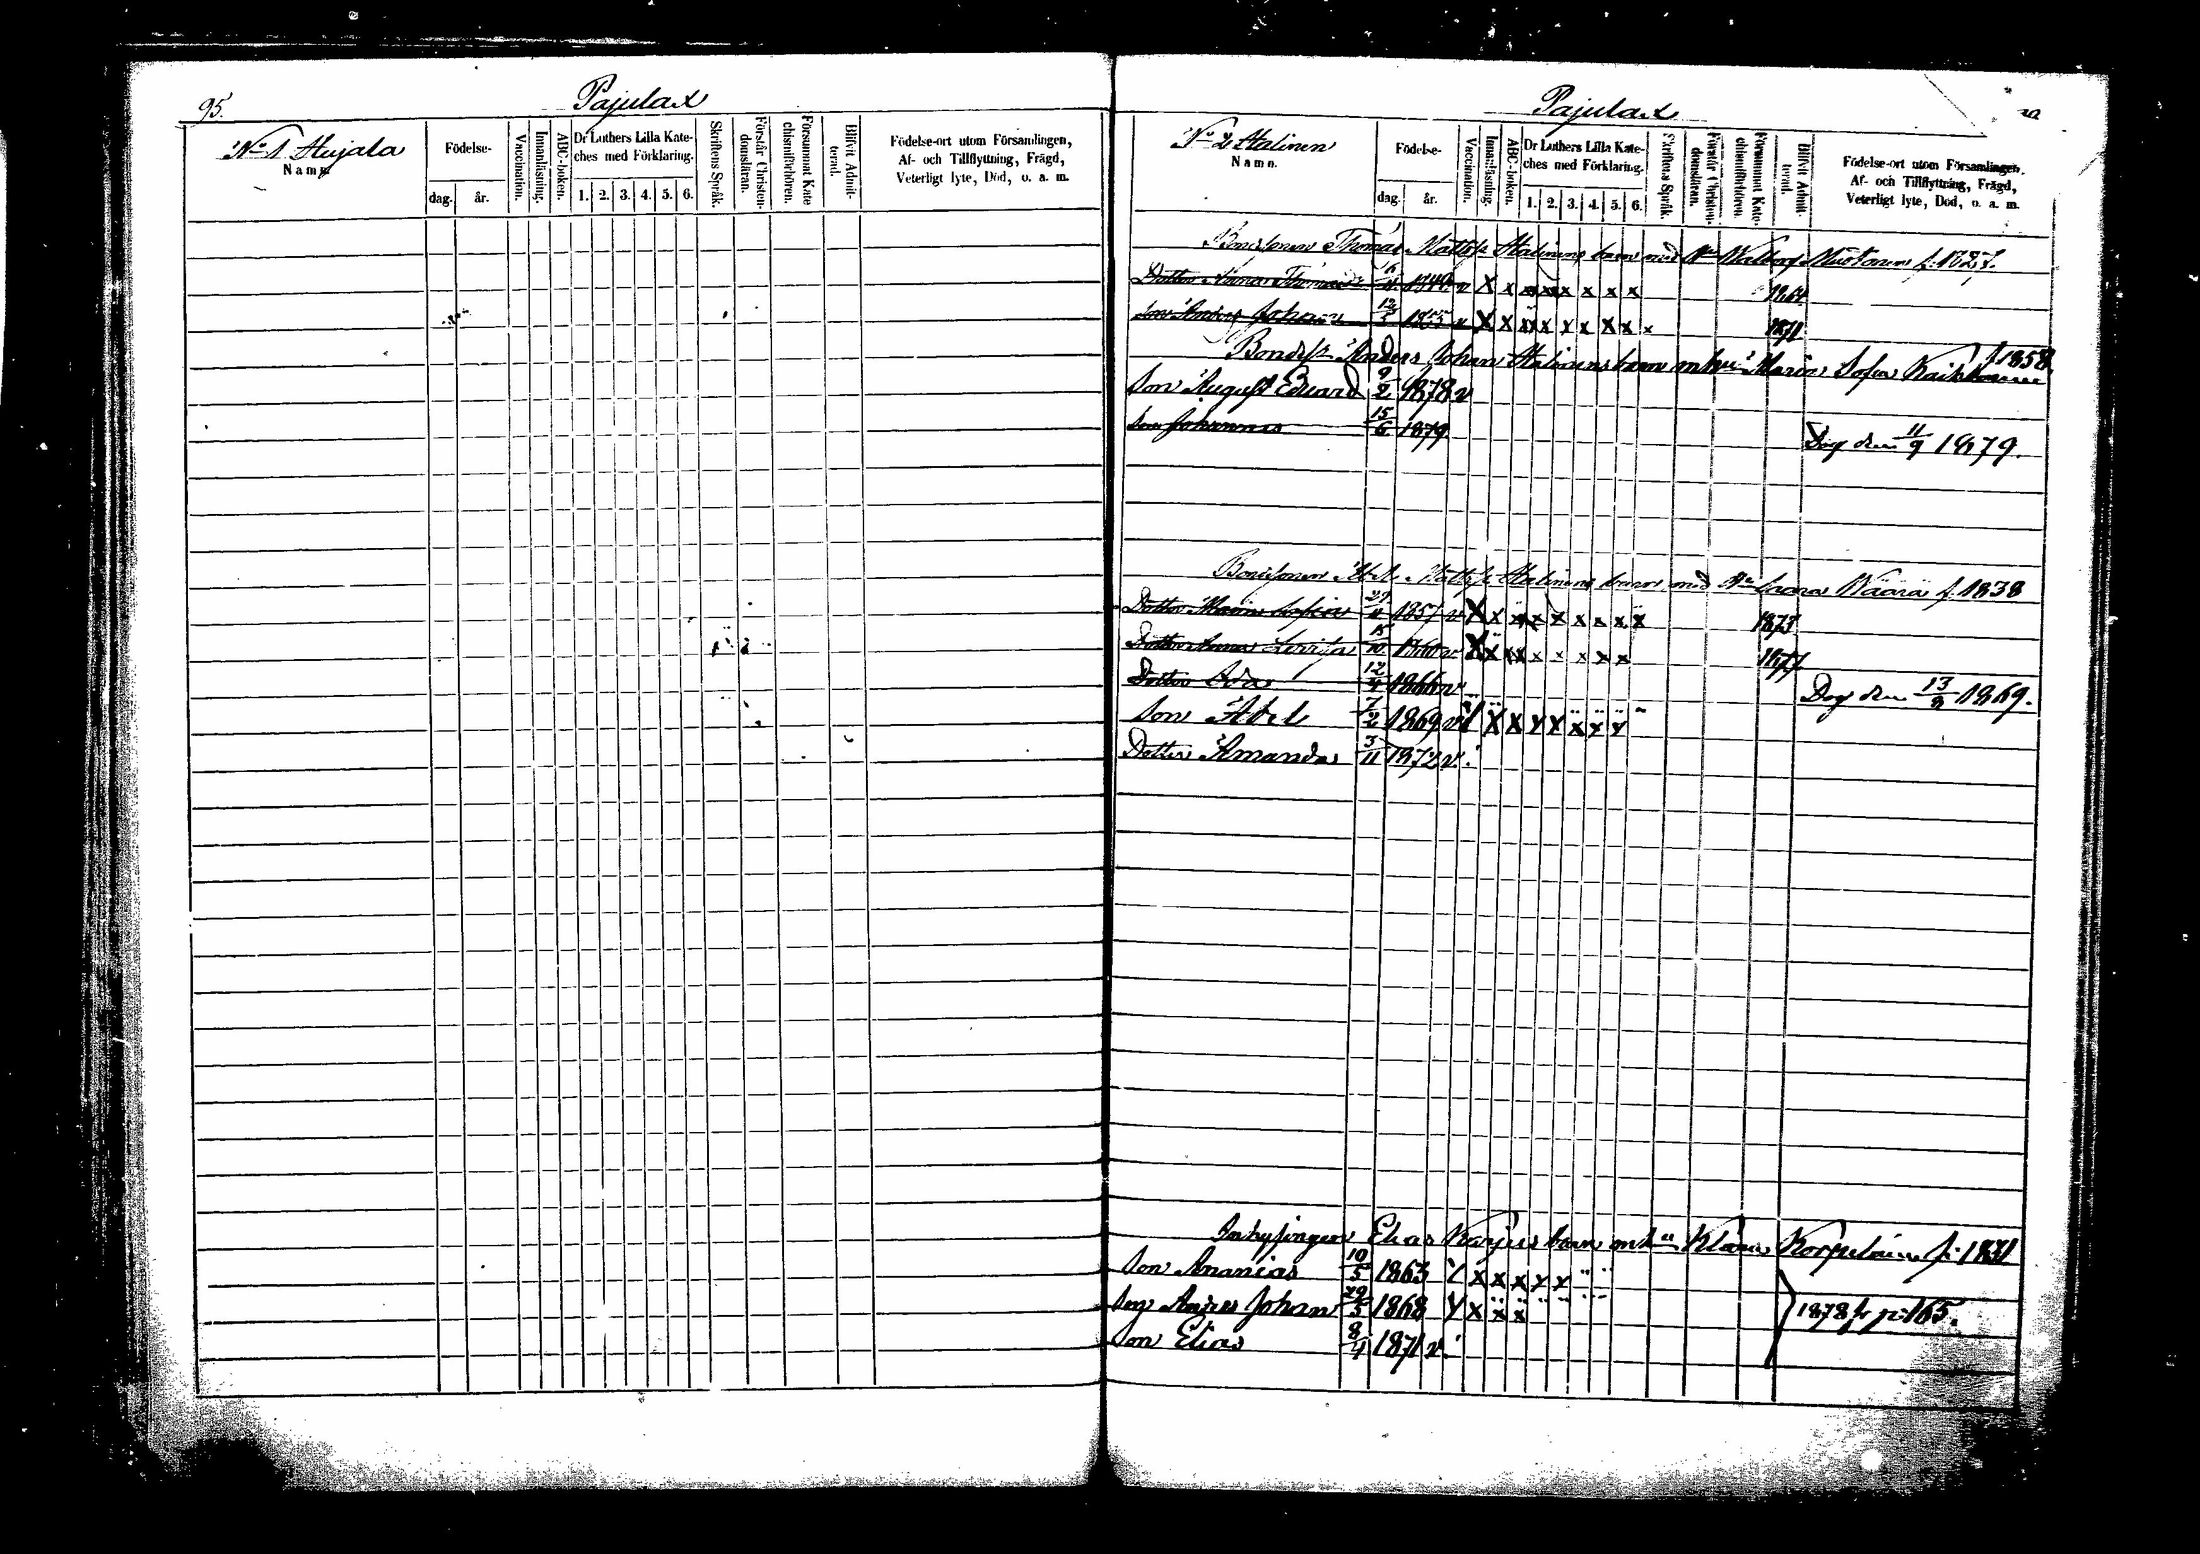 95.
Pajulax
No 1 Hujala
Namn.
Födelse-
dag.
år.
Vaccination.
Innanläsning.
ABC-boken.
Dr Luthers Lilla Kate-
ches med Förklaring.
1. 2. 3. 4. 5. 6.
Skriftens Språk.
Förstår Christen-
domsläran.
Försummat Kate
chismiförhören.
Blifvit Admit-
terad.
Födelse-ort utom Församlingen,
Af- och Tillflyttning, Frägd,
Veterligt lyte, Död, o. a. m.
Pajulax
No 2 Stalinen
Namn.
Födelse-
dag.
år.
Vaccination.
Innanläsning.
ABC-boken.
Dr Luthers Lilla Kate-
ches med Förklaring.
1. 2. 3. 4. 5. 6.
Skriftens Språk.
Förstår Christen-
domsläran.
Försummat Kate-
chismiförhören.
Blifvit Admit-
terad.
Födelse-ort utom Församlingen,
Af- och Tillflyttning, Frägd,
Veterligt lyte, Död, o. a. m.
Bondsonen Thomas Mattss Stalinens barn med Hu Walborg Mustonen f. 1827.
Dotter Anna 16 v x x x x x x x 1864
Son Anders Johan 12/5 1855 v x x x x x x x x 1871
Bondes Anders Johan Stalinens barn m hu Maria Sofia f 1858.
Son August Edvard 9/2 1878 v
Son Johannes 15/6 1879 Dog den 11/9 1879.
Bondsonen Abel Mattss Stalinens barn med Hu f. 1838
Dotter Maria Sofia 1857 v x x x x x x x x x 1873
Dotter Anna 15 1860 v x x x x x x x x 1877
Dotter Eva 12/4 1866 v Dog den 13/8 1869.
Son Abel 7/2 1869 v x x x x x x x
Dotter Amanda 3/11 1872 v
Inhysingen Elias Karjus barn m hu Klara Korpelainen f. 1831
Son Ananias 10/5 1863 x x x x x
Son Anders Johan 29/5 1868 x x x
Son Elias 8/4 1871 v
1878 fr p. 165.